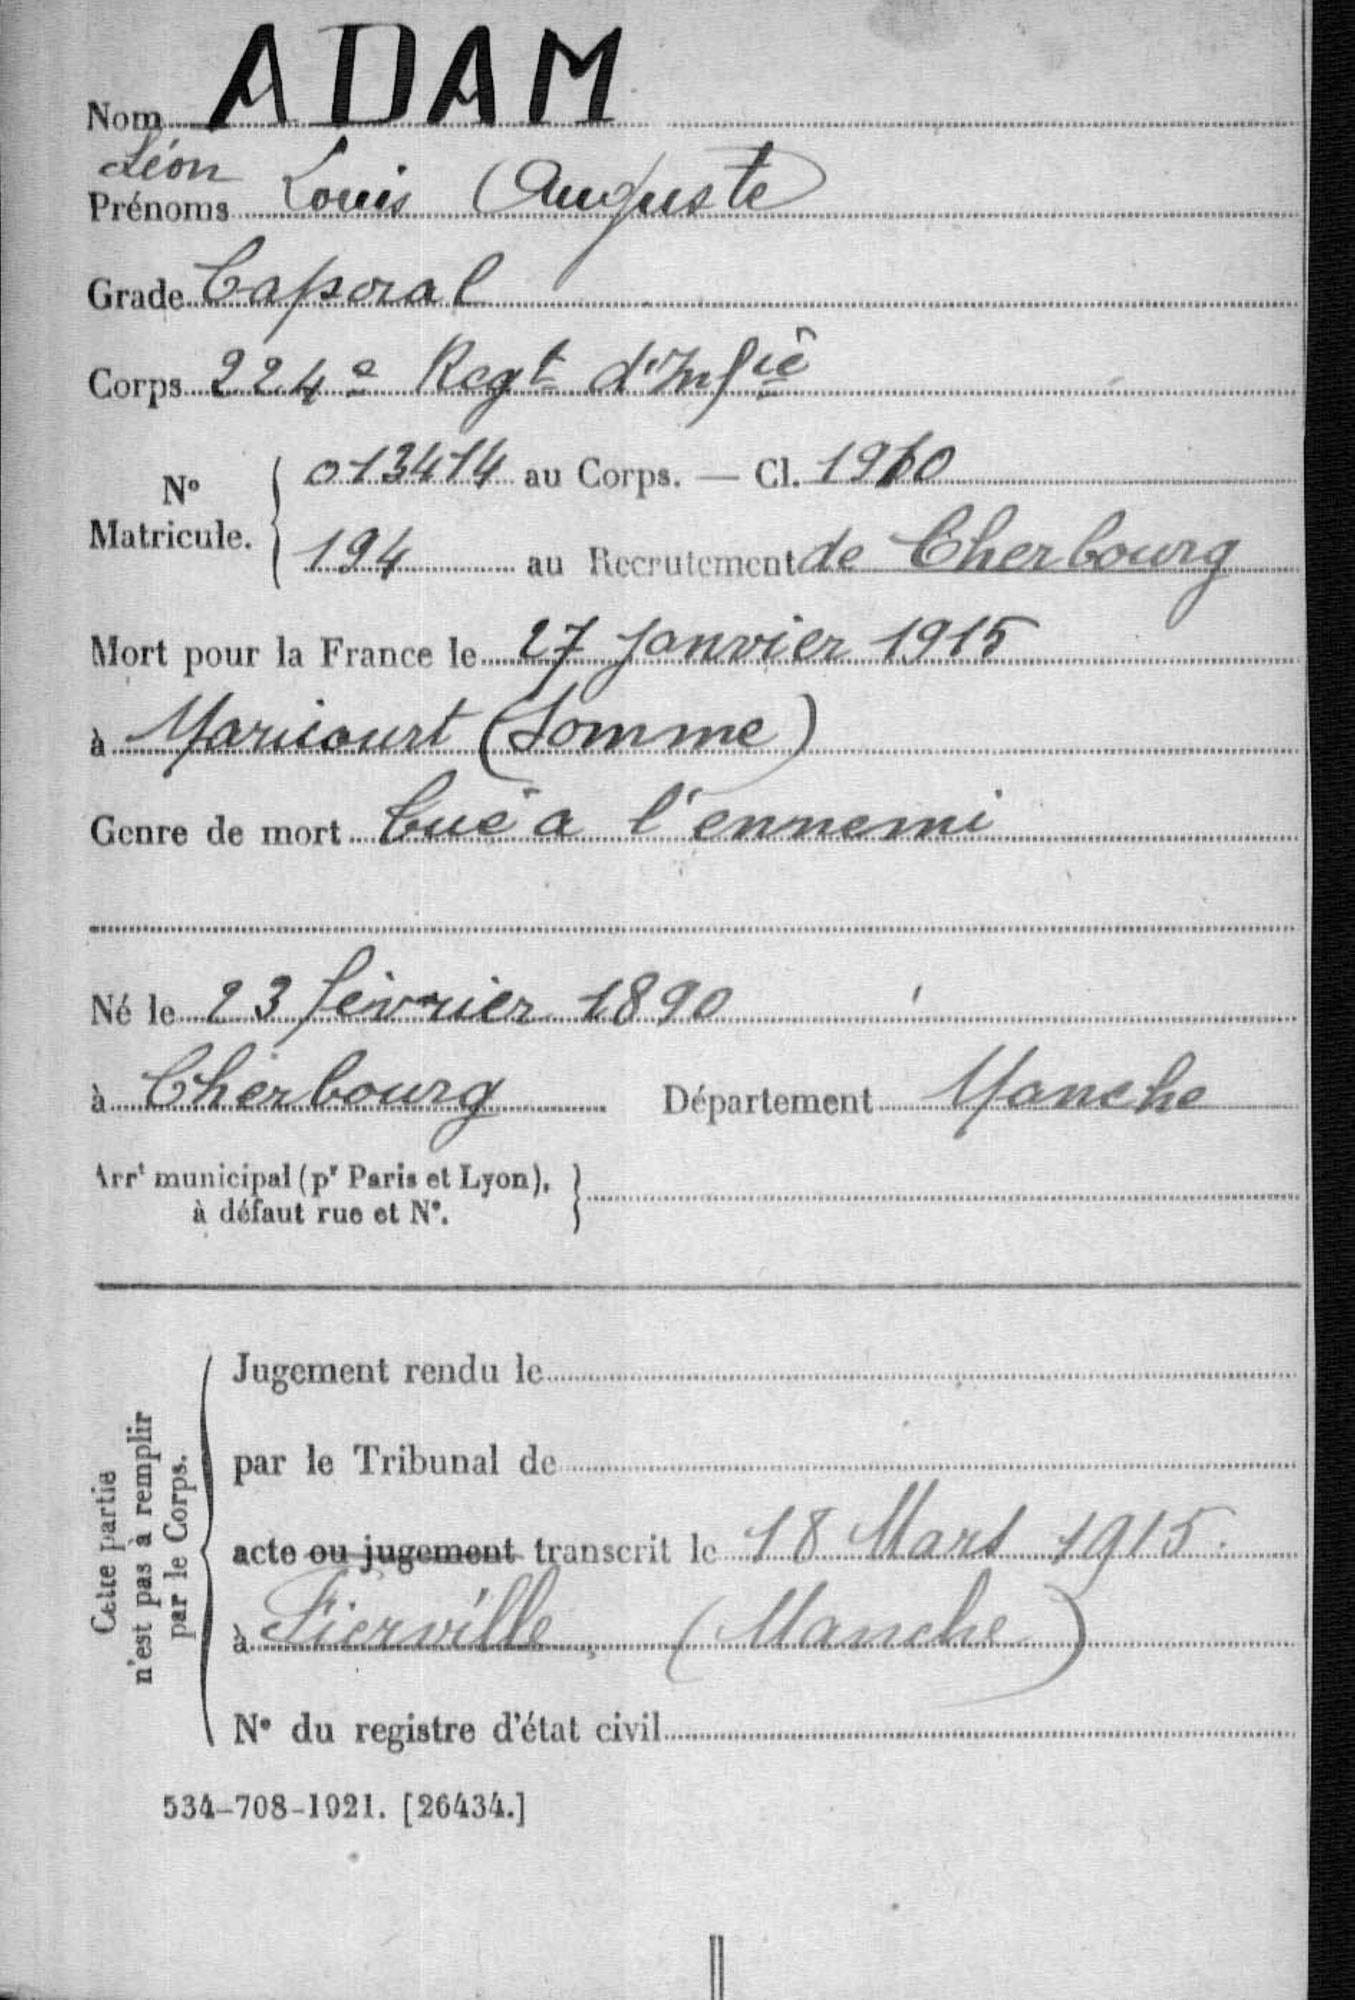 Nom ADAM
Léon
Prénoms Louis Auguste
Grade Caporal
Corps 224e Regt d'Infie
No Matricule. { 013414 au Corps. — Cl. 1910
194 au Recrutement de Cherbourg
Mort pour la France le 27 Janvier 1915
à Maricourt (Somme)
Genre de mort tué à l'ennemi
Né le 23 février 1890
à Cherbourg Département Manche
Arrt municipal (pr Paris et Lyon),
à défaut rue et No.
Cette partie
n'est pas à remplir
par le Corps.
Jugement rendu le
par le Tribunal de
acte ou jugement transcrit le 18 Mars 1915.
à Fierville, (Manche)
No du registre d'état civil
534-708-1921. [26434.]